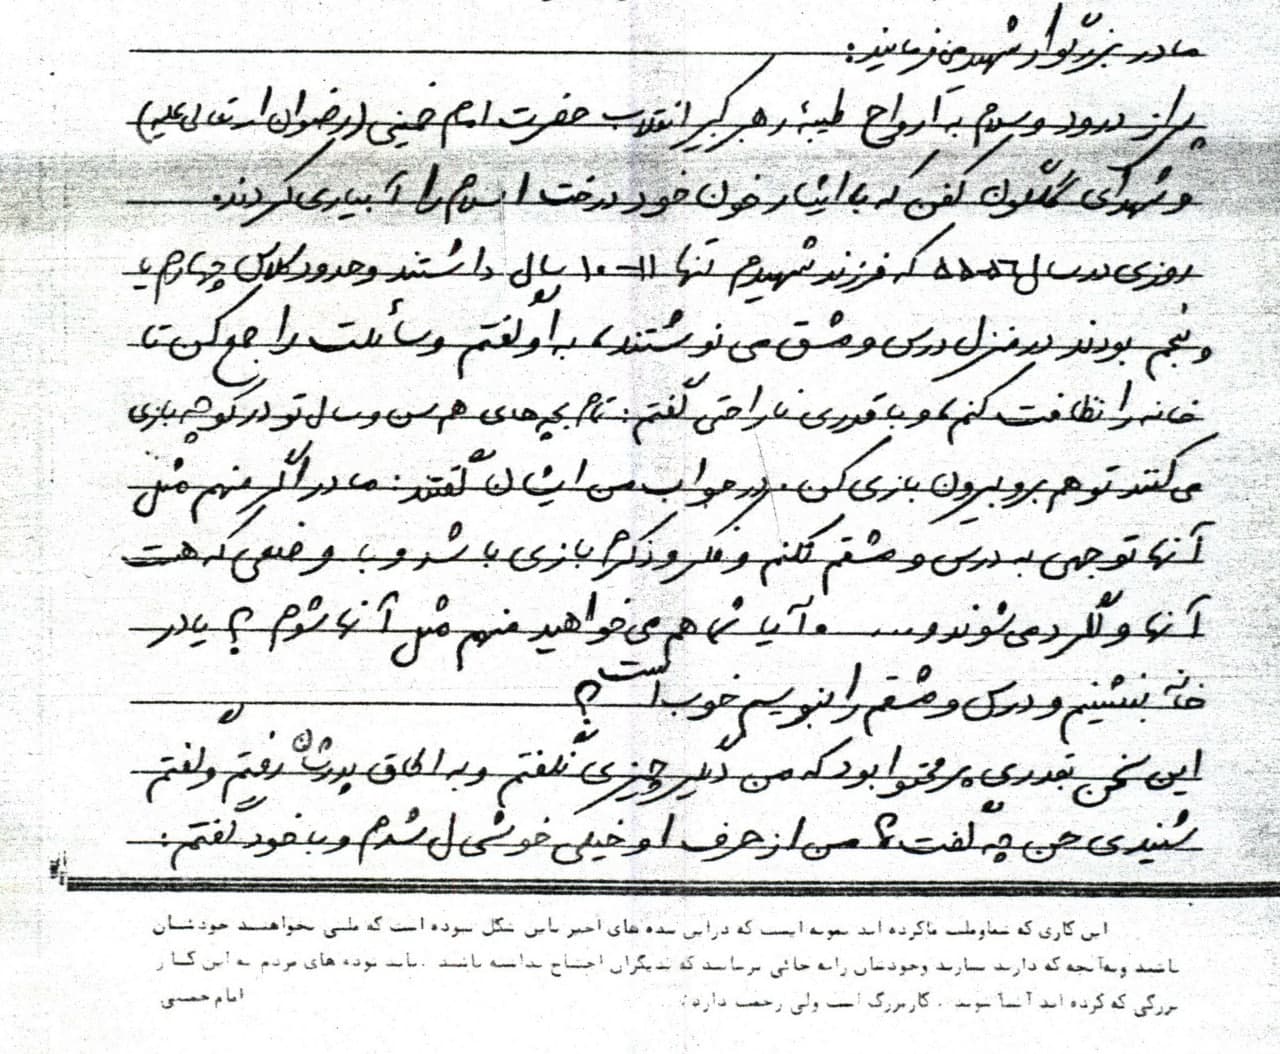 مادر بزرگوار شهید می فرمایند:
پس از درود و سلام به ارواح طیبهٔ رهبر کبیر انقلاب حضرت امام خمینی (رضوان ا... تعالی علیه)
و شهدای گلگون کفن که با ایثار خون خود درخت اسلام را آبیاری کردند.
روزی در سال ۵۶-۵۵ که فرزند شهیدم تنها ۱۱-۱۰ سال داشتند و حدود کلاس چهارم یا
پنجم بودند در منزل درس و مشق می نوشتند، به او گفتم وسائلت را جمع کن تا
خانه را نظافت کنم، و با قدری ناراحتی گفتم: تمام بچه های هم سن و سال تو در کوچه بازی
می کنند تو هم برو بیرون بازی کن. در جواب من ایشان گفتند: مادر اگر منهم مثل
آنها توجهی به درس و مشقم نکنم و فکر و ذکرم بازی باشد و با وضعی که هست
آنها ولگرد می شوند و... . و آیا شما هم می خواهید منهم مثل آنها شوم؟ یا در
خانه بنشینم و درس و مشقم را بنویسم خوب است؟
این سخن بقدری پر محتوا بود که من دیگر چیزی نگفتم و به اطاق پدرشان رفتم و گفتم
شنیدی حسن چه گفت؟ من از حرف او خیلی خوشحال شدم و با خود گفتم:
این کاری که شما و ملت ما کرده اند نمونه ایست که در این سده های اخیر باین شکل نبوده است که ملتی بخواهند خودشان
باشند و به آنچه که دارند بسازند و خودشان را به جائی برسانند که بدیگران احتیاج نداشته باشند. باید توده های مردم به این کار
بزرگی که کرده اند آشنا شوند. کار بزرگ است ولی زحمت دارد.
امام خمینی